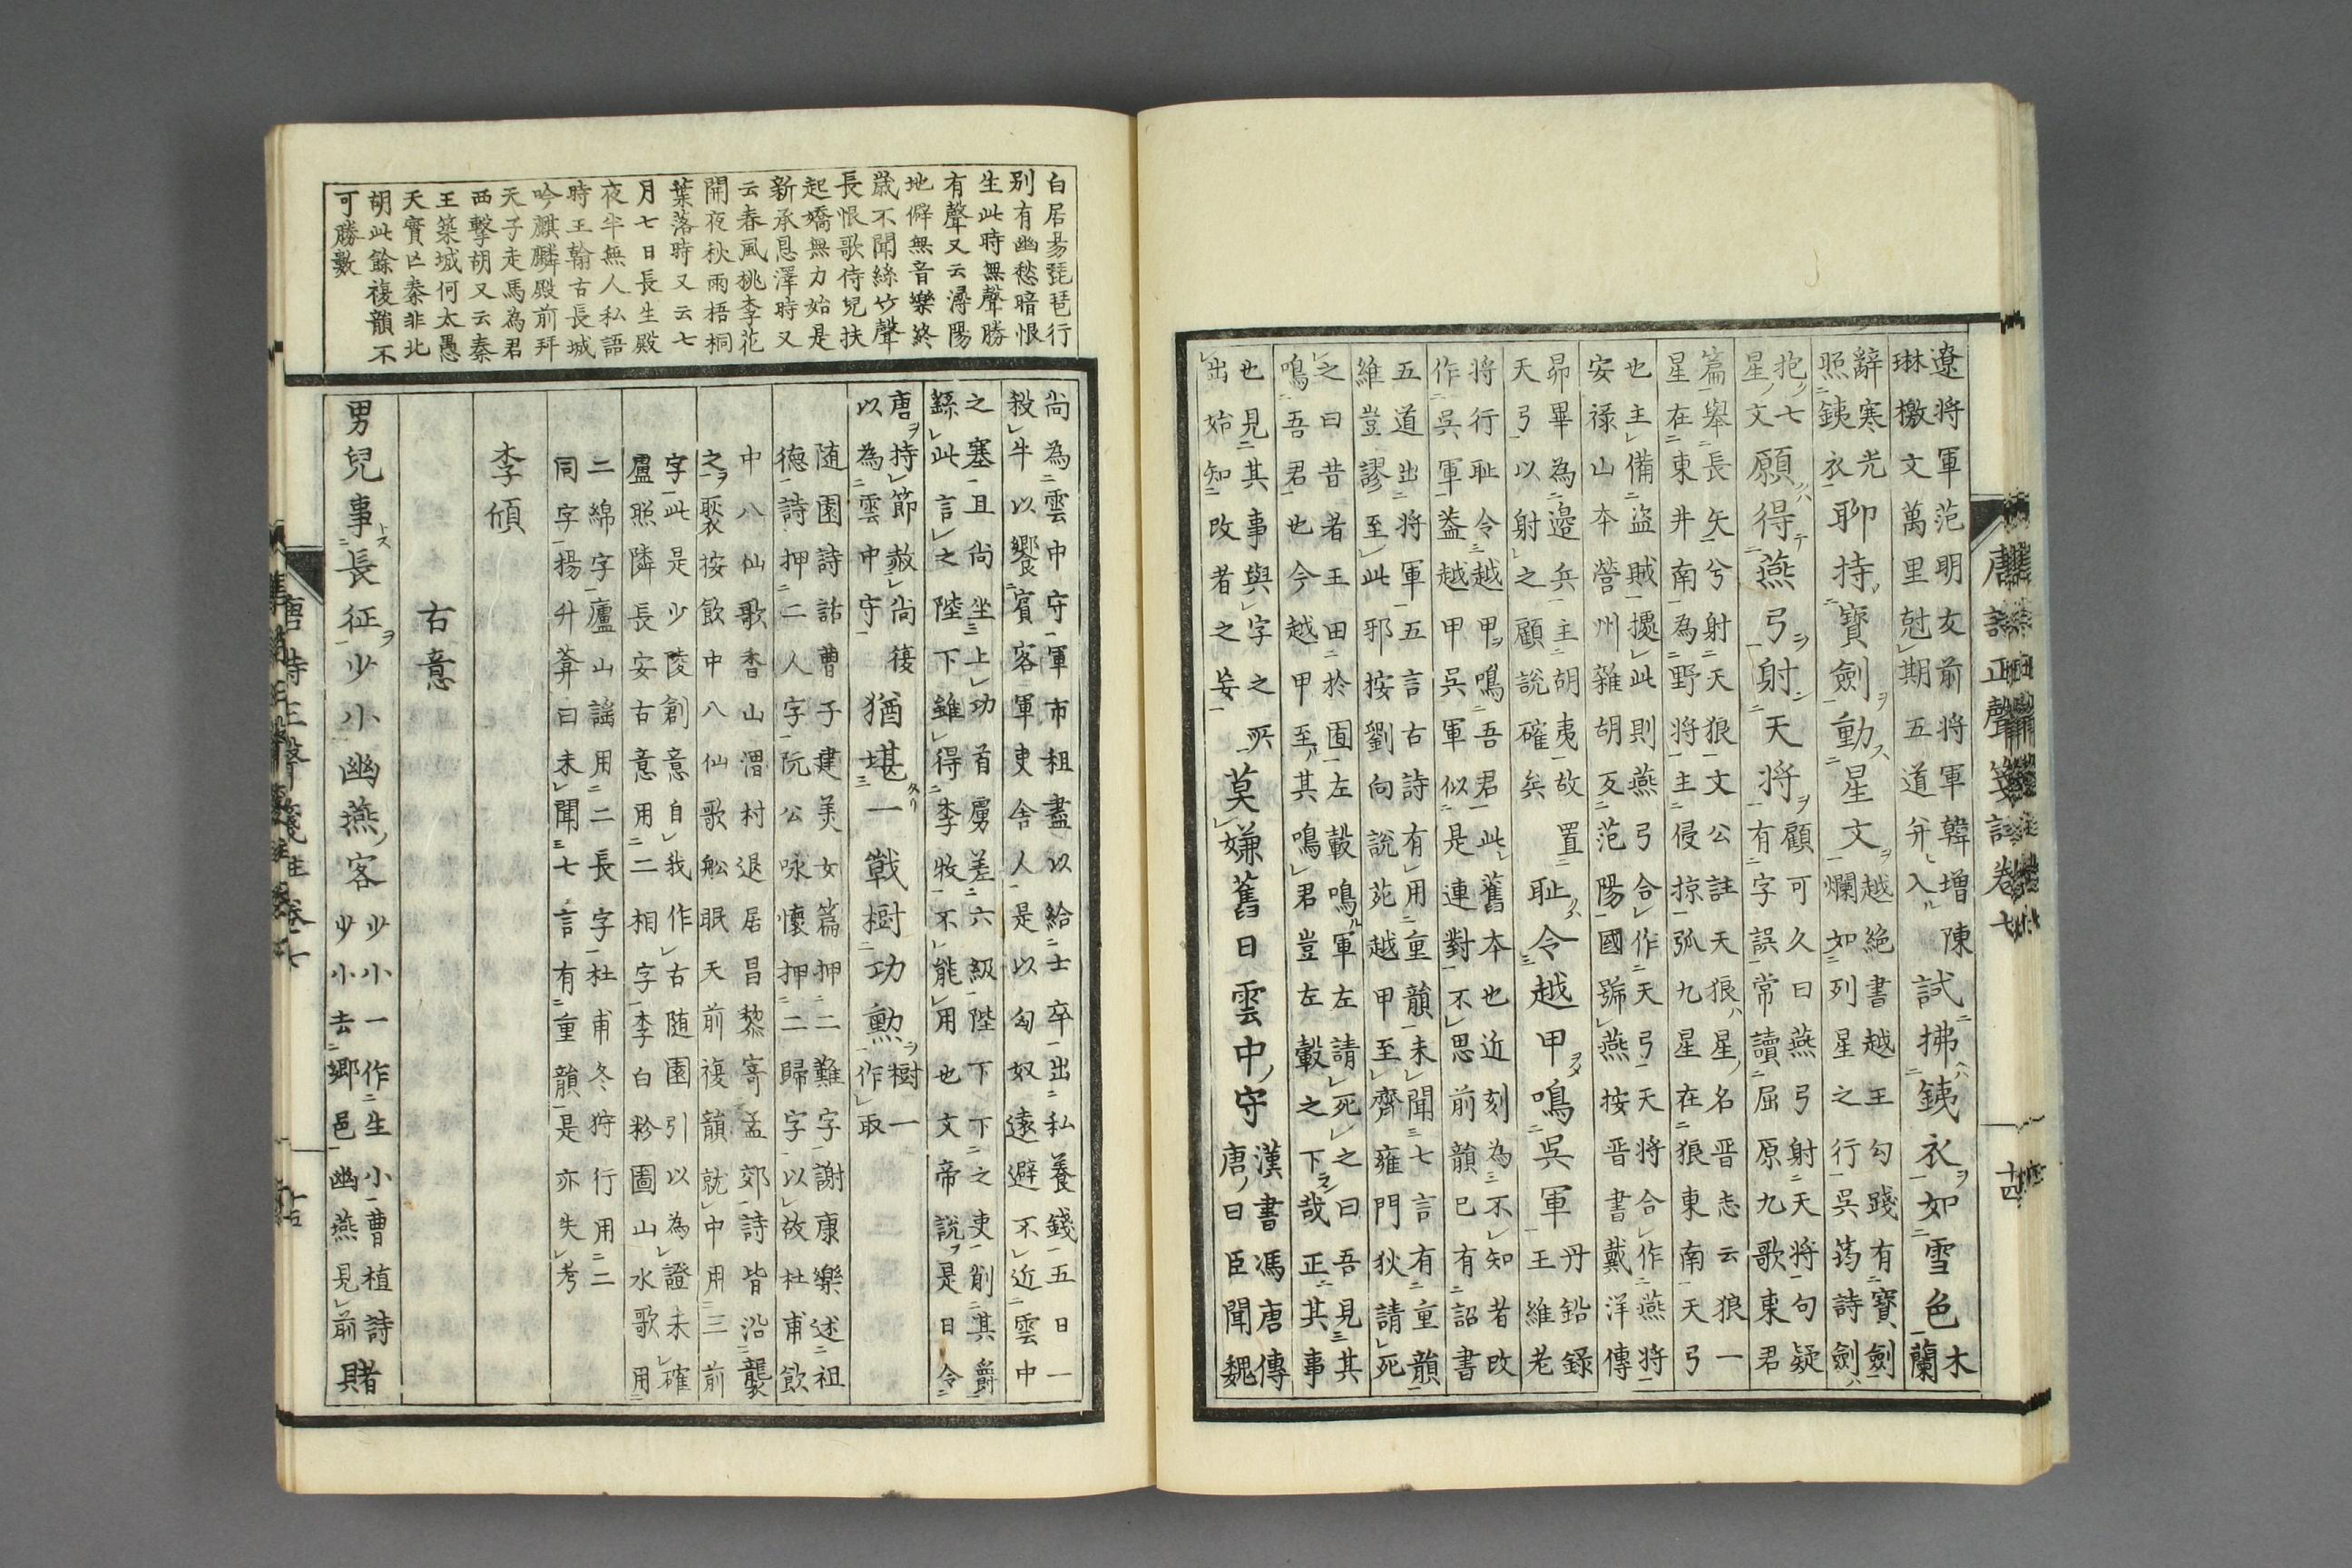 唐詩正聲箋註卷七
十四
遼將軍范明友前將軍韓增陳
琳檄文萬里尅期五道并入
試拂鐵衣如雪色
木
蘭
辭寒光
照鐵衣
聊持寶劍動星文
越絕書越王勾踐有寶劍
爛如列星之行吳筠詩劍
抱七
星文
願得燕弓射天將
顧可久曰燕弓射天將句疑
有字誤常讀屈原九歌東君
篇舉長矢兮射天狼文公註天狼星名晋志云狼一
星在東井南為野將主侵掠弧九星在狼東南天弓
也主備盜賊擾此則燕弓合作天弓天將合作燕將
安禄山夲營州雜胡反范陽國號燕按晋書戴洋傳
昴畢為邊兵主胡夷故置
天弓以射之顧說確矣
恥令越甲鳴吳軍
丹鉛錄
王維老
將行恥令越甲鳴吾君此舊本也近刻為不知者改
作吳軍葢越甲吳軍似是連對不思前韻巳有詔書
五道出將軍五言古詩有用重韻未聞七言有重韻
維豈謬至此邪按劉向說苑越甲至齊雍門狄請死
之曰昔者王田於囿左轂鳴軍左請死之曰吾見其
鳴吾君也今越甲至其鳴君豈左轂之下哉正其事
也見其事與字之所
出始知改者之妄
莫嫌舊日雲中守
漢書馮唐傳
唐曰臣聞魏
白居易琵琶行
別有幽愁暗恨
生此時無聲勝
有聲又云潯陽
地僻無音樂終
歲不聞絲竹聲
長恨歌侍兒扶
起嬌無力始是
新承恩澤時又
云春風桃李花
開夜秋雨梧桐
葉落時又云七
月七日長生殿
夜半無人私語
時王翰古長城
吟麒麟殿前拜
天子走馬為君
西擊胡又云秦
王築城何太愚
天實亡秦非北
胡此餘複韻不
可勝數
尚為雲中守軍市租盡以給士卒出私養錢五日一
殺牛以饗賓客軍吏舍人是以匈奴遠避不近雲中
之塞且尚坐上功首虜差六級陛下下之吏削其爵
繇此言之陛下雖得李牧不能用也文帝說是日令
唐持節赦尚復
以為雲中守
猶堪一戰樹功勲
樹一
作取
随園詩話曹子建美女篇押二難字謝康樂述祖
德詩押二人字阮公咏懷押二歸字以故杜甫飲
中八仙歌香山渭村退居昌黎寄孟郊詩皆沿襲
之聚按飲中八仙歌船眠天前複韻就中用三前
字此是少陵創意自我作古随園引以為證未確
盧照隣長安古意用二相字李白粉圖山水歌用
二綿字廬山謠用二長字杜甫冬狩行用二
同字揚升菴曰未聞七言有重韻是亦失考
李頎
古意
男兒事長征少小幽燕客
少小一作生小曹植詩
少小去鄉邑幽燕見前
賭